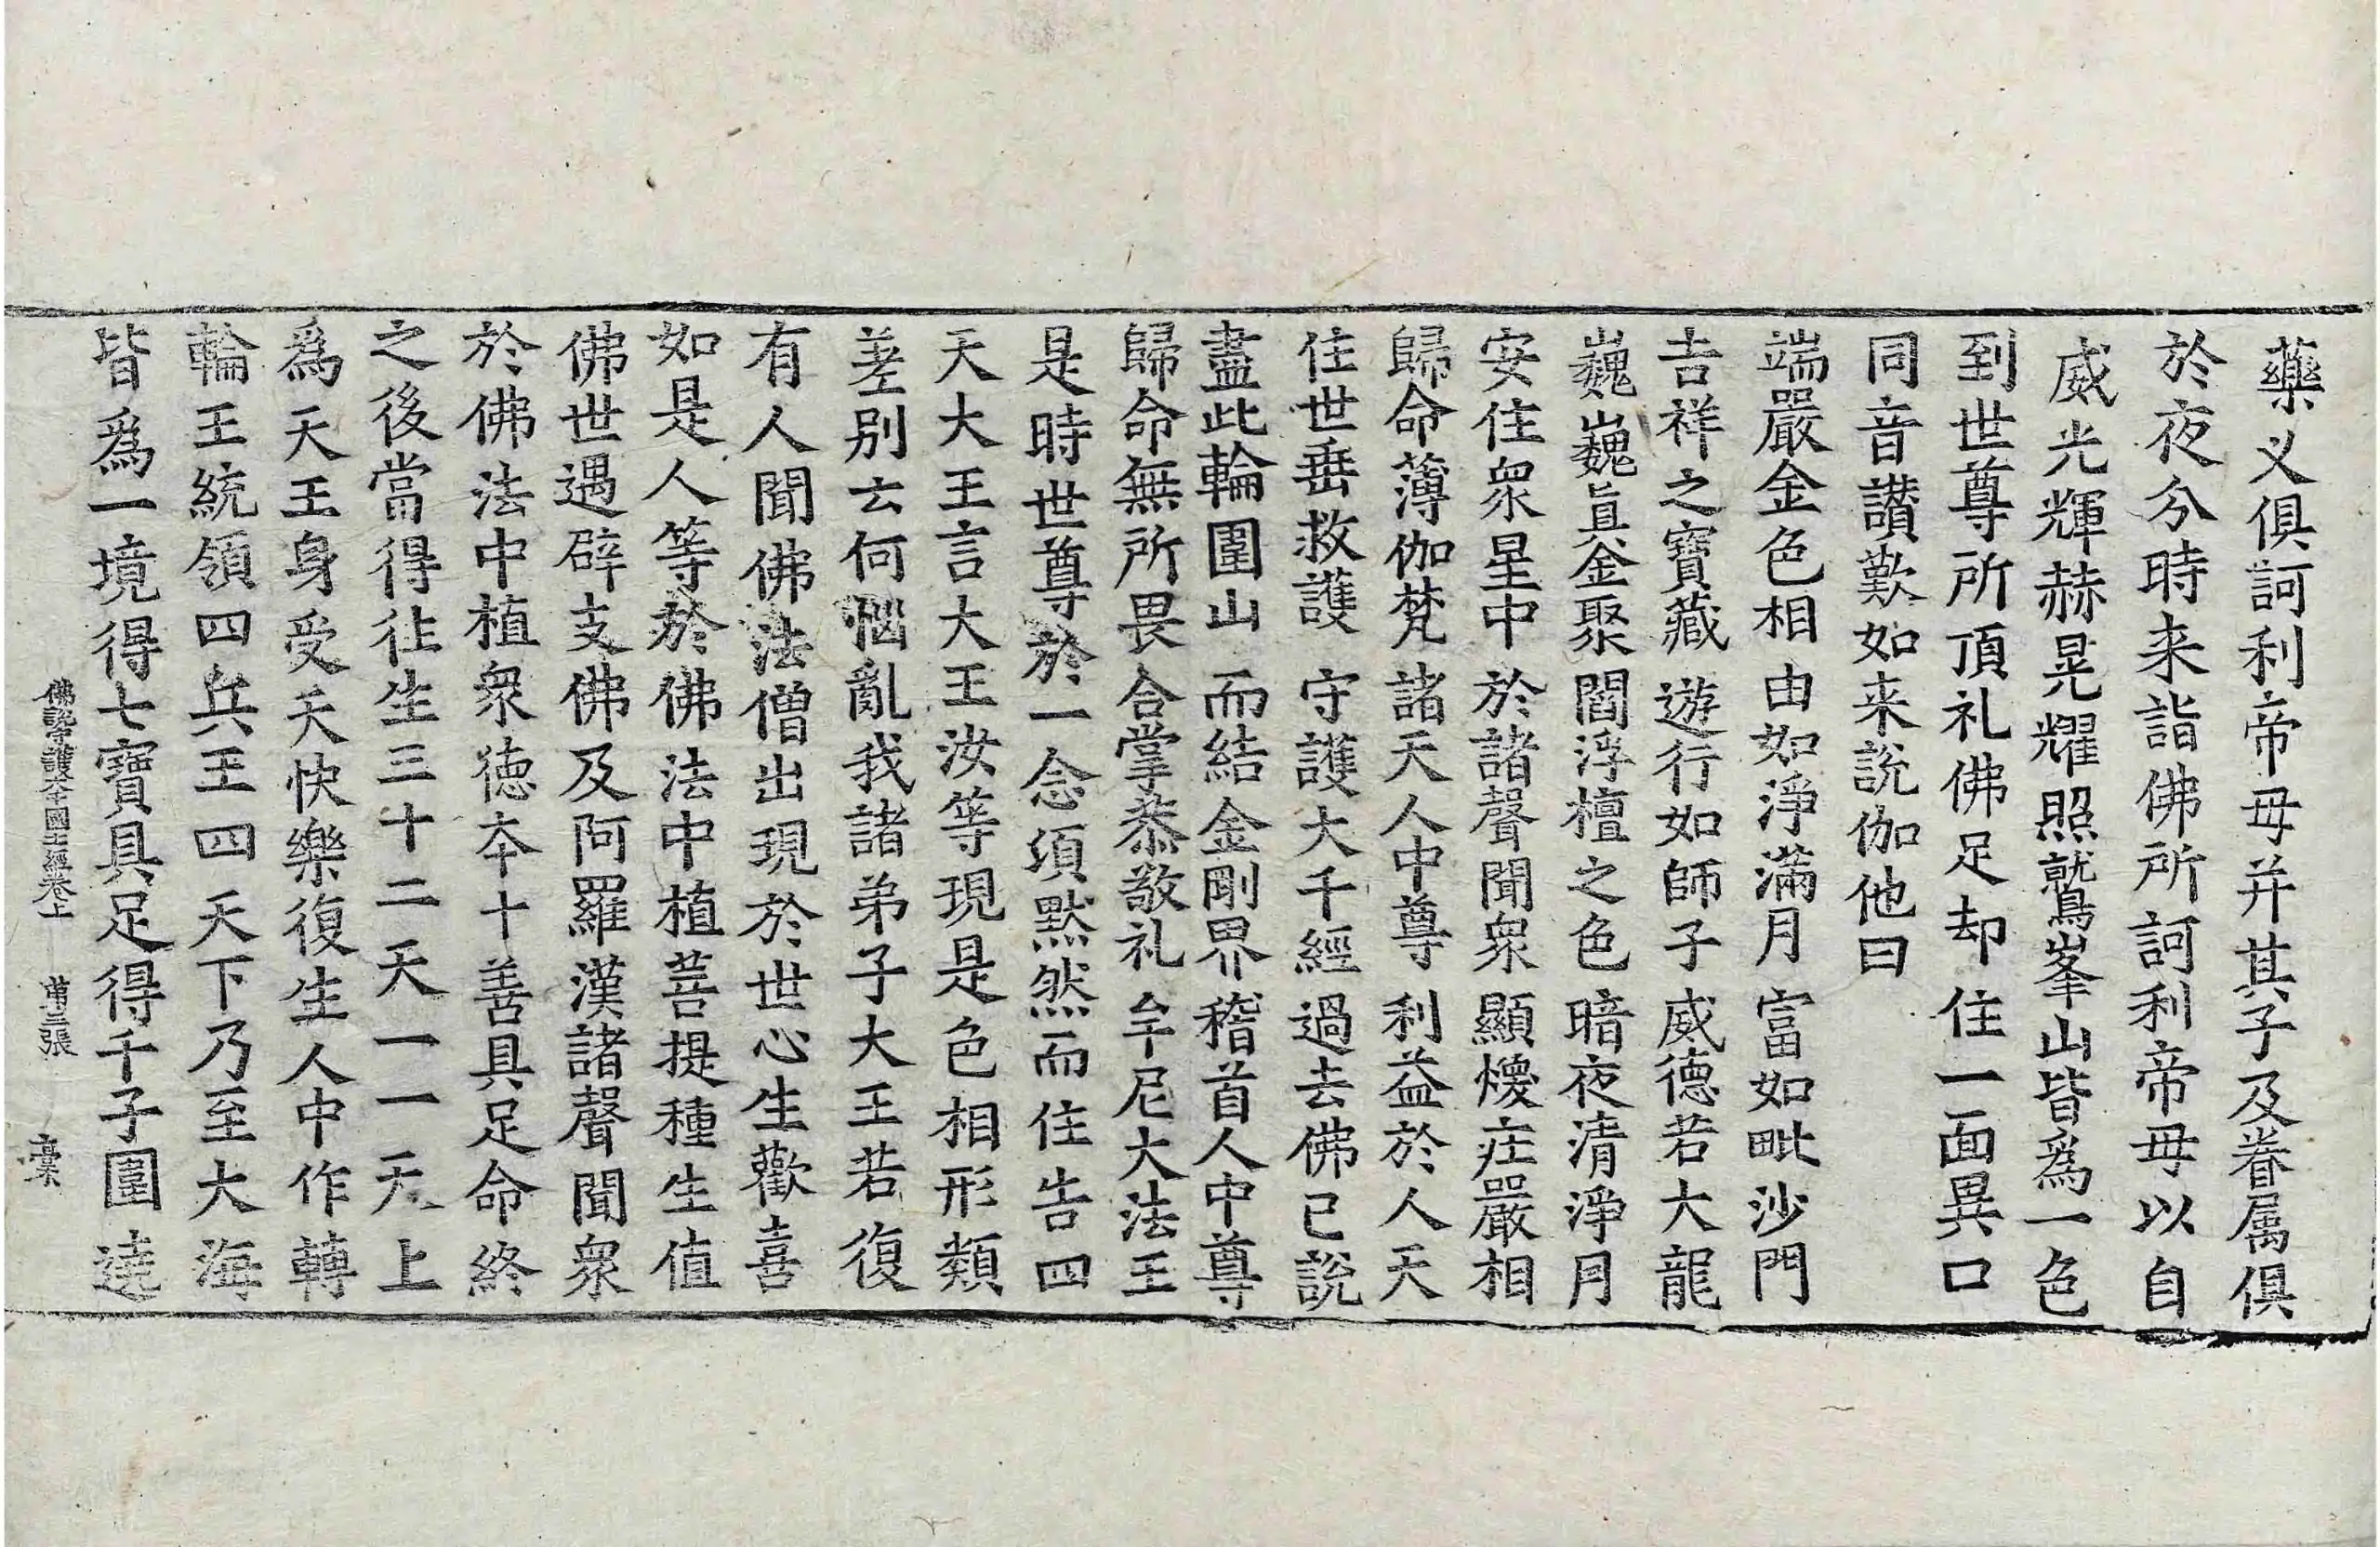 藥义俱訶利帝母并其子及眷属俱
於夜分時来詣佛所訶利帝母以自
威光輝赫晃耀照鷲峯山皆爲一色
到世尊所頂礼佛足却住一面異口
同音讃歎如来説伽他曰
端嚴金色相　由如淨滿月　富如毗沙門
吉祥之寶藏　遊行如師子　威德若大龍
巍巍真金聚　閻浮檀之色　暗夜清淨月
安住衆星中　於諸聲聞衆　顯煥庄嚴相
歸命薄伽梵　諸天人中尊　利益於人天
住世垂救護　守護大千經　過去佛已説
盡此輪圍山　而結金剛界　稽首人中尊
歸命無所畏　合掌恭敬礼　牟尼大法王
是時世尊於一念須黙然而住告四
天大王言大王汝等現是色相形類
差别云何惱亂我諸弟子大王若復
有人聞佛法僧出現於世心生歡喜
如是人等於佛法中植菩提種生值
佛世遇辟支佛及阿羅漢諸聲聞衆
於佛法中植衆德本十善具足命終
之後當得往生三十二天一一天上
爲天王身受天快樂復生人中作轉
輪王統領四兵王四天下乃至大海
皆爲一境得七寶具足得千子圍遶
佛説守護大千國土經卷上　第三張